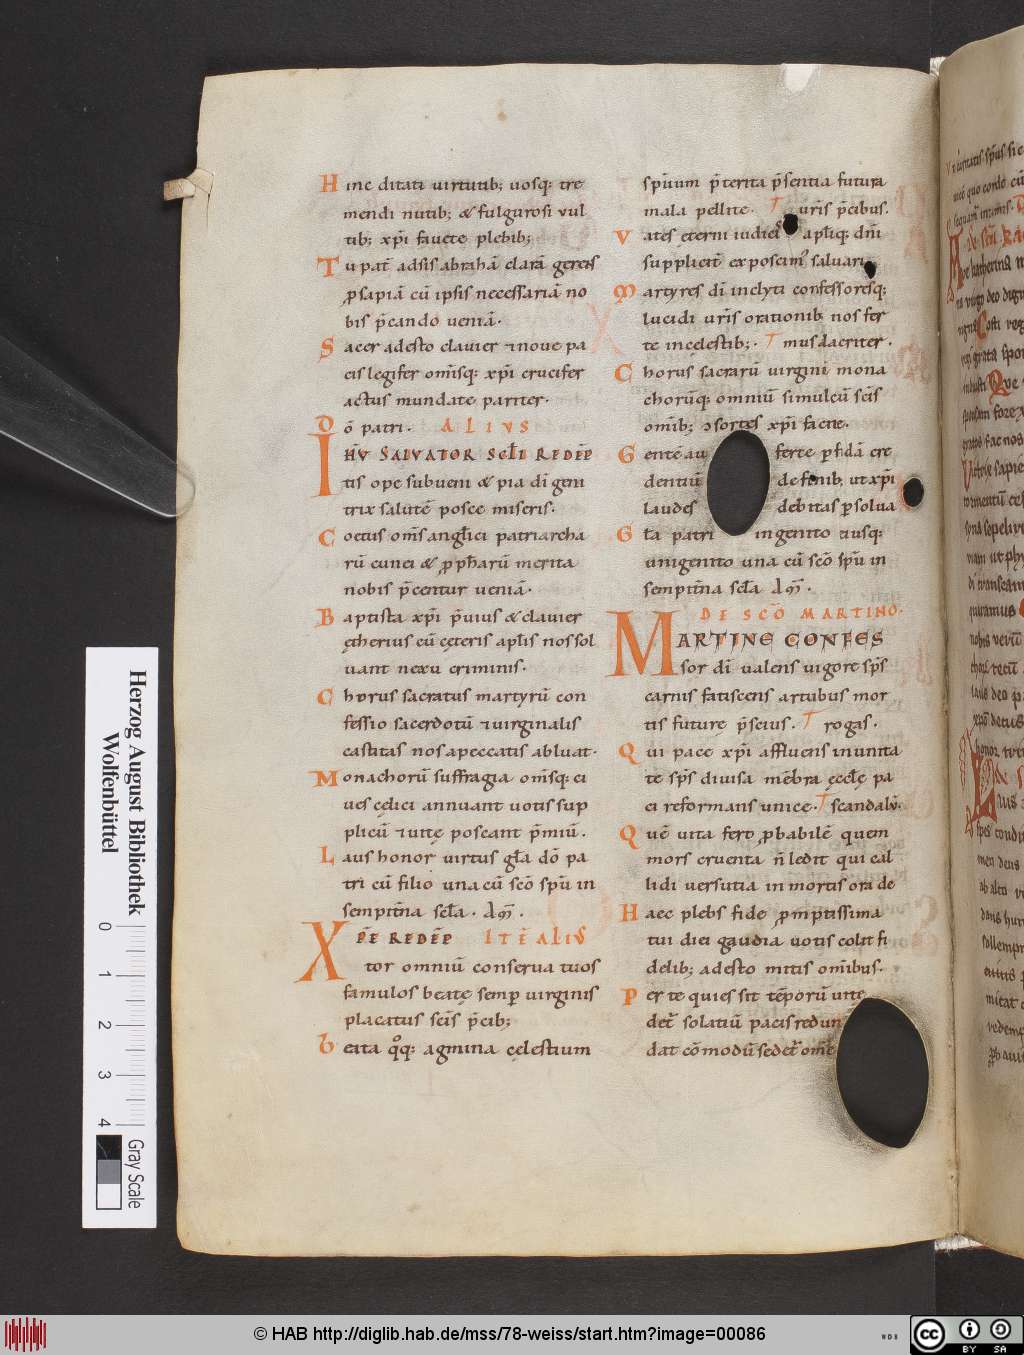 Hinc ditati uirtutib; uosq: tre
mendi nutib; & fulgurosi uul
tib; xp̄i fauete plebib;
Tu pat̄ adsis abrahā clarā gerens
ꝓsapiā cū ipsis necessariā no
bis p̄cando ueniā.
Sacer adesto clauier ⁊ inoue pa
cis legifer om̄isq: xp̄i crucifer
actus mundate pariter.
Dō patri. ALIVS
IHV̄ SALVATOR SCL̄I REDĒP
tis ope subueni & pia dī geni
trix salutē posce miseris.
Coetus om̄s anglici patriarcha
rū cunei & ꝓph̄arū merita
nobis p̄centur ueniā.
Baptista xp̄i p̄uius & clauier
ętherius cū cęteris apl̄is nos sol
uant nexu criminis.
Chorus sacratus martyrū con
fessio sacerdotū ⁊ uirginalis
castitas nos a peccatis abluat.
Monachorū suffragia om̄sq: ci
ues cęlici annuant uotis sup
plicū ⁊ uitę poscant p̄miū.
Laus honor uirtus gl̄a dō pa
tri cū filio una cū scō sp̄u in
sempit̄na scl̄a. Am̄.
XPĒ REDĒP ITĒ ALIV̄
tor omniū conserua tuos
famulos beatę semꝑ uirginis
placatus scīs p̄cib;
Beata q̊q: agmina cęlestium
sp̄uum p̄terita p̄sentia futura
mala pellite. T uris̄ p̄cibus.
Vates ęterni iudicis apliq: dn̄i
supplicit̄ exposcim᾽ saluari
Martyres dī inclyti confessoresq:
lucidi uris̄ orationib nos fer
te in cęlestib;. T mus dacriter.
Chorus sacrarū uirginū mona
chorūq: omniū simul cū scīs
om̄ib; ↄsortes xp̄i facite.
Gentē au ferte ꝑfidā cre
dentiū de finib; ut xp̄i
laudes debitas ꝑsolua
Gl̄a patri ingenito eiusq:
unigenito una cū scō sp̄u in
sempit̄na scl̄a Am̄.
DE SCŌ MARTINO.
MARTINE CONFES
sor dī ualens uigore sp̄s
carnis fatiscens artubus mor
tis future p̄scius. T rogas.
Qui pace xp̄i affluens in unita
te sp̄s diuisa mēbra ęccl̄ę pa
ci reformans unice. T scandalū.
Quē uita fert ꝓbabilē quem
mors cruenta n̄ ledit qui cal
lidi uersutia in mortis ora de
Haec plebs fide ꝓmptissima
tui diei gaudia uotis colit fi
delib; adesto mitis om̄ibus.
Per te quies sit tēporū uitę
det᷑ solatiū pacis redun
dat cōmodū sedet᷑ om̄e
Herzog August Bibliothek
Wolfenbüttel
0 1 2 3 4
Gray Scale
© HAB http://diglib.hab.de/mss/78-weiss/start.htm?image=00086
WDB
CC BY SA